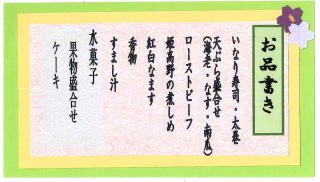 お品書き
いなり寿司・太巻
天ぷら盛合せ
(海老・なす・南瓜)
ローストビーフ
姫高野の煮しめ
紅白なます
香物
すまし汁
水菓子
果物盛合せ
ケーキ